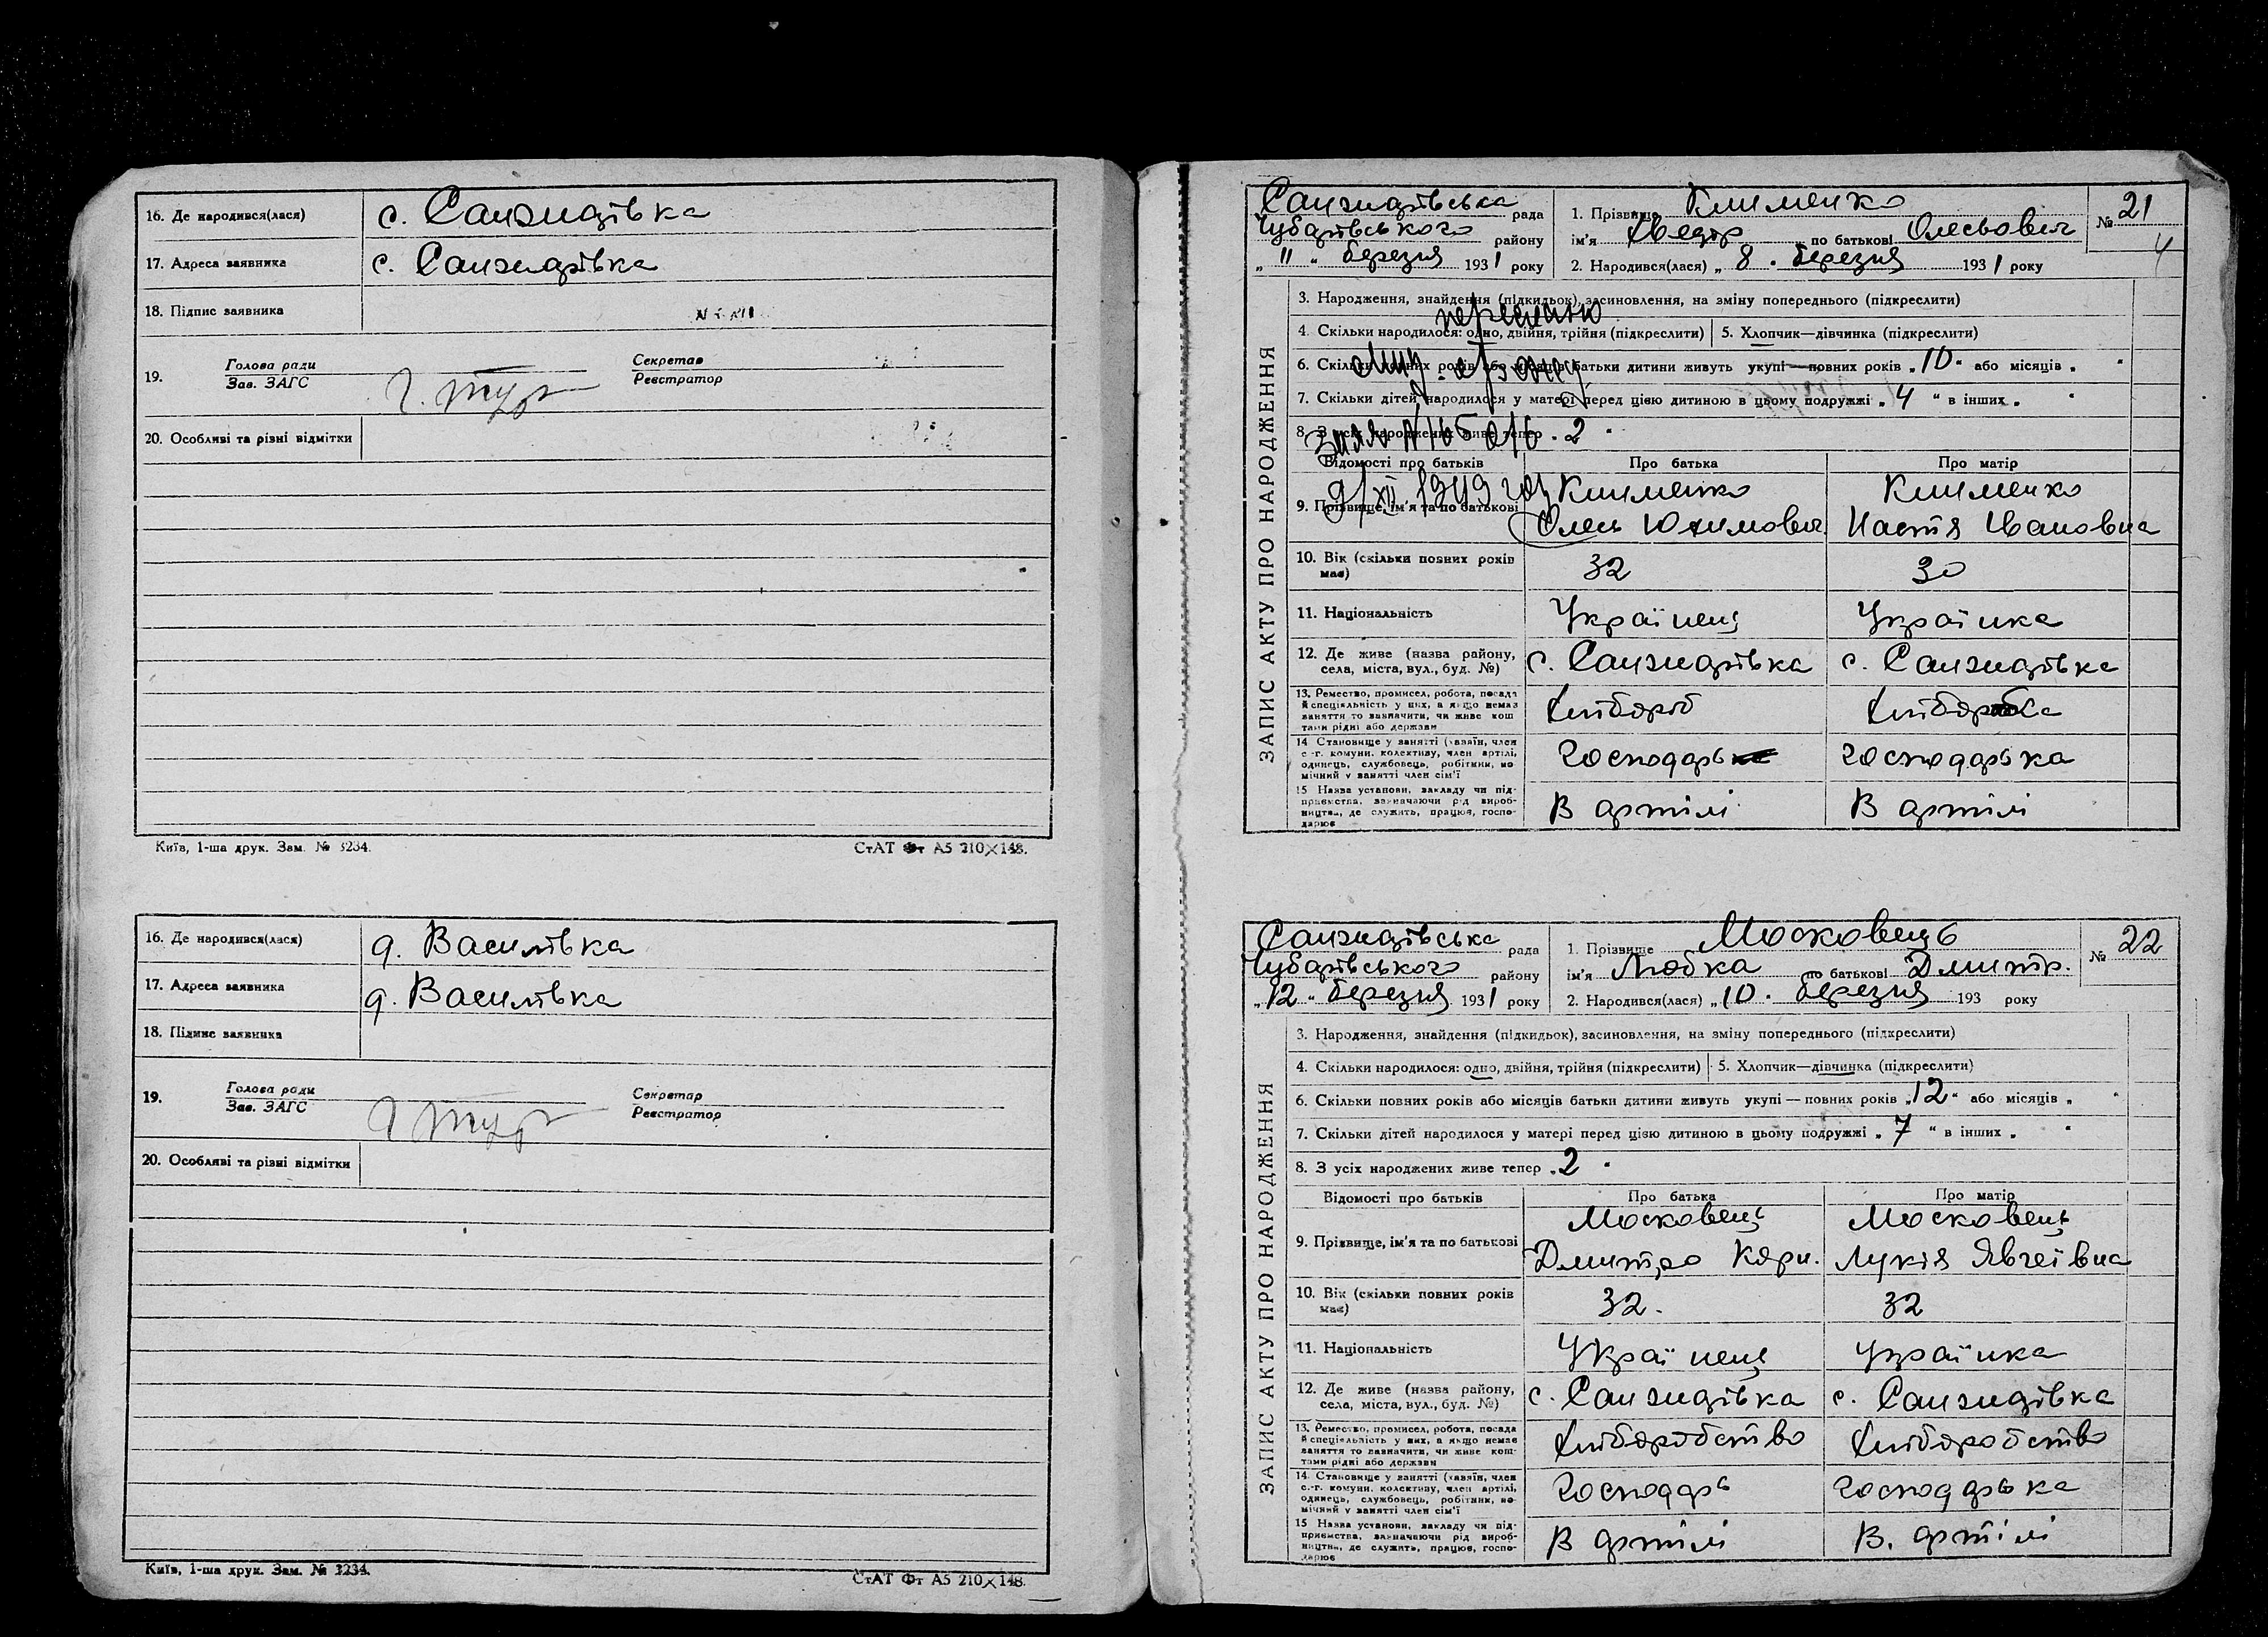 16. Де народився(лася) с. Санжидівка
17. Адреса заявника с. Санжидівка
18. Підпис заявника
19. Голова ради
Зав. ЗАГС
Секретар
Реєстратор
20. Особливі та різні відмітки
Київ, 1-ша друк. Зам. № 3234. СтАТ Фт А5 210×148.
16. Де народився(лася) д. Василівка
17. Адреса заявника д. Василівка
18. Підпис заявника
19. Голова ради
Зав. ЗАГС
Секретар
Реєстратор
20. Особливі та різні відмітки
Київ, 1-ша друк. Зам. № 3234. СтАТ Фт А5 210×148.
ЗАПИС АКТУ ПРО НАРОДЖЕННЯ
Санжидівська рада
Чубарівського району
„ 11 “ березня 1931 року
1. Прізвище Клименко
ім'я Хведір по батькові Олесьович
2. Народився(лася) „ 8 “ березня 1931 року
№ 21
4
3. Народження, знайдення (підкидьок), засиновлення, на зміну попереднього (підкреслити)
4. Скільки народилося: одно, двійня, трійня (підкреслити) 5. Хлопчик—дівчинка (підкреслити)
6. Скільки повних років або місяців батьки дитини живуть укупі—повних років „ 10 “ або місяців „ “
7. Скільки дітей народилося у матері перед цією дитиною в цьому подружжі „ 4 “ в інших „ “
8. З усіх народжених живе тепер „ 2 “
Відомості про батьків Про батька Про матір
9. Прізвище, ім'я та по батькові Клименко Олесь Юхимович Клименко Настя Івановна
10. Вік (скільки повних років має) 32 30
11. Національність Українец Українка
12. Де живе (назва району, села, міста, вул., буд. №) с. Санжидівка с. Санжидівка
13. Ремество, промисел, робота, посада й спеціяльність у них, а якщо немає заняття то зазначити, чи живе коштами рідні або держави Хлібороб Хліборобка
14. Становище у занятті (хазяїн, член с.-г. комуни, колективу, член артілі, одинець, службовець, робітник, помічний у занятті член сім'ї Господарь господарька
15. Назва установи, закладу чи підприємства, зазначаючи рід виробництва, де служить, працює, господарює В артілі В артілі
ЗАПИС АКТУ ПРО НАРОДЖЕННЯ
Санжидівська рада
Чубарівського району
„ 12 “ березня 1931 року
1. Прізвище Московець
ім'я Любка по батькові Дмитр.
2. Народився(лася) „ 10 “ березня 193 року
№ 22
3. Народження, знайдення (підкидьок), засиновлення, на зміну попереднього (підкреслити)
4. Скільки народилося: одно, двійня, трійня (підкреслити) 5. Хлопчик—дівчинка (підкреслити)
6. Скільки повних років або місяців батьки дитини живуть укупі—повних років „ 12 “ або місяців „ “
7. Скільки дітей народилося у матері перед цією дитиною в цьому подружжі „ 7 “ в інших „ “
8. З усіх народжених живе тепер „ 2 “
Відомості про батьків Про батька Про матір
9. Прізвище, ім'я та по батькові Московець Дмитро Кярн. Московець Лукія Явгеївна
10. Вік (скільки повних років має) 32. 32
11. Національність Українец Українка
12. Де живе (назва району, села, міста, вул., буд. №) с. Санжидівка с. Санжидівка
13. Ремество, промисел, робота, посада й спеціяльність у них, а якщо немає заняття то зазначити, чи живе коштами рідні або держави Хліборобство Хліборобство
14. Становище у занятті (хазяїн, член с.-г. комуни, колективу, член артілі, одинець, службовець, робітник, помічний у занятті член сім'ї Господарь господарька
15. Назва установи, закладу чи підприємства, зазначаючи рід виробництва, де служить, працює, господарює В артілі В. артілі